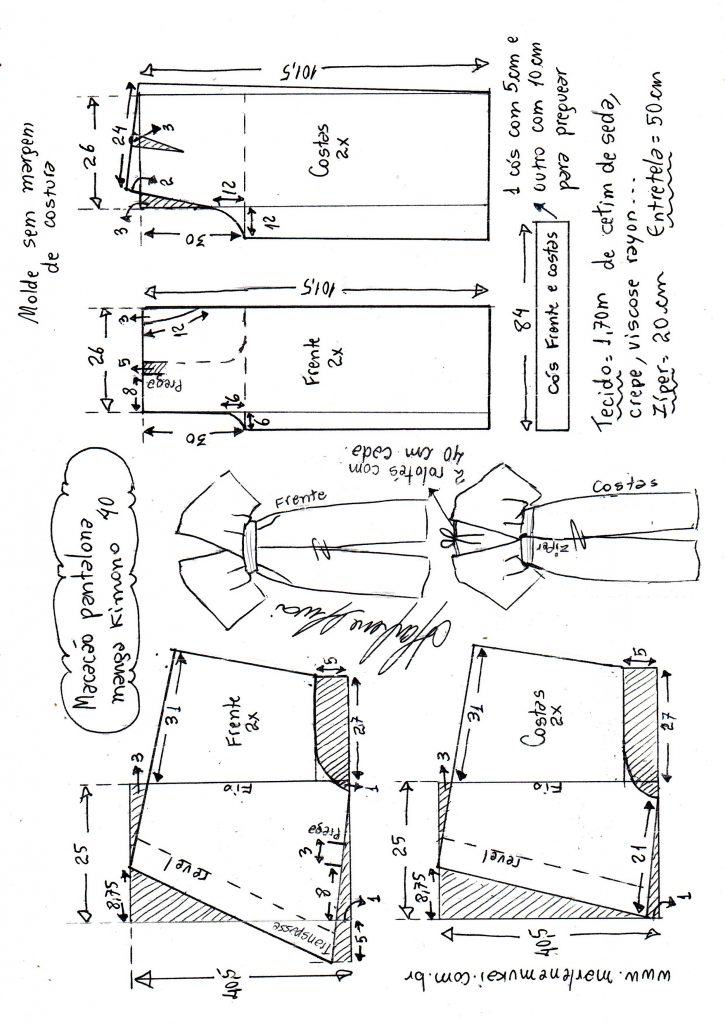 Macacão pantalona
manga Kimono 40
Molde sem margem
de costura
40,5
25
8,75
3
31
Transpasse
revel
Fio
Frente
2x
5
1
8
3
Prega
1
27
5
40,5
25
8,75
3
31
revel
Fio
Costas
2x
21
1
27
5
www.marlenemukai.com.br
Frente
Marlene Mukai
2 rolotês com
40 cm cada.
Costas
Zíper
26
30
8
5
Prega
3
12
6
6
101,5
Frente
2x
26
24
3
2
3
30
12
12
101,5
Costas
2x
84
Cós Frente e costas
1 cós com 5cm e
outro com 10cm
para preguear
Tecido = 1,70m de cetim de seda,
crepe, viscose rayon...
Zíper = 20cm Entretela = 50cm